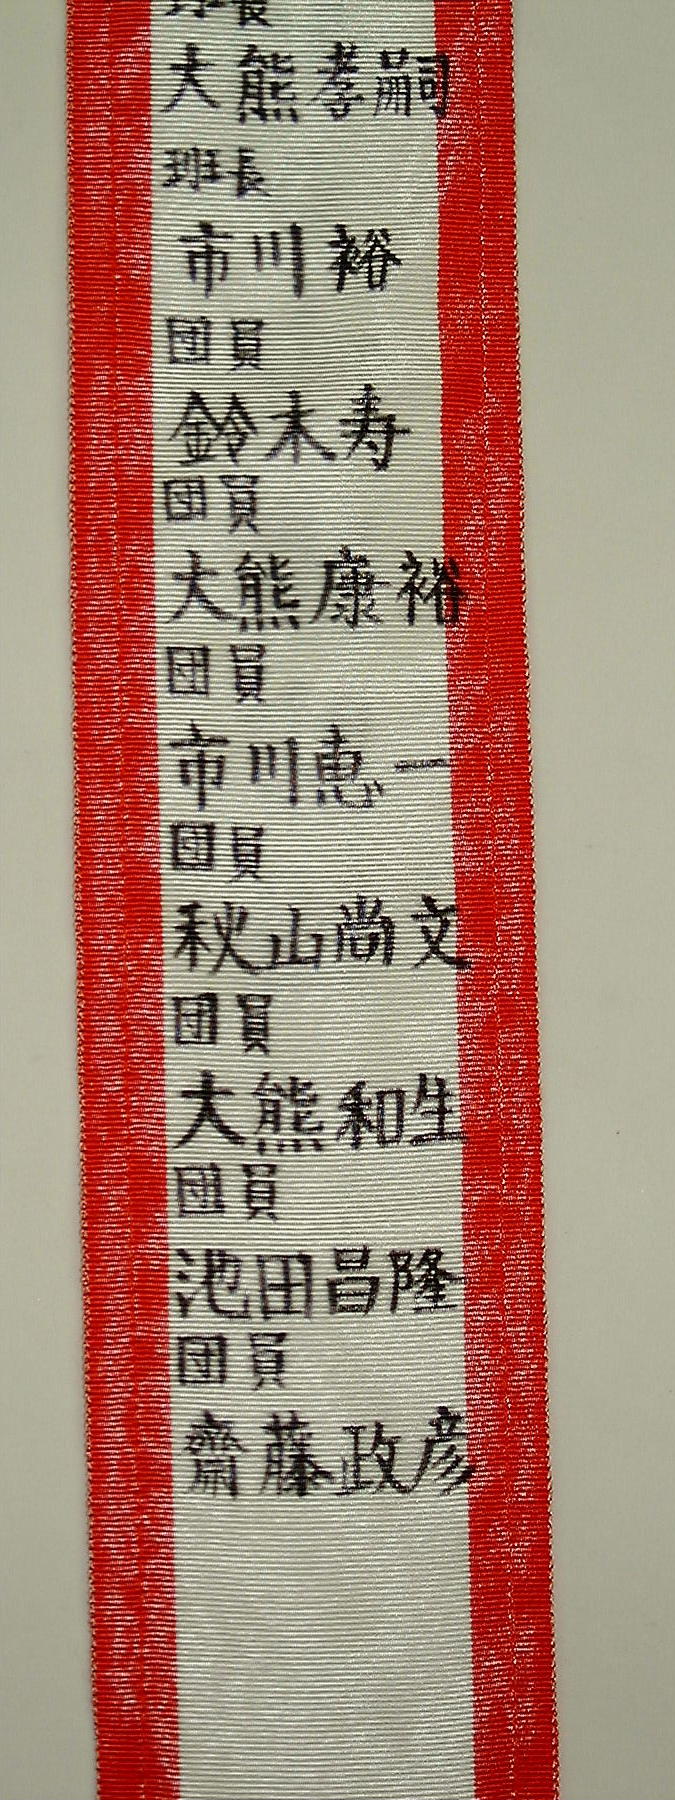 班長
大熊孝嗣
班長
市川裕
団員
鈴木寿
団員
大熊康裕
団員
市川恵一
団員
秋山尚文
団員
大熊和生
団員
池田昌隆
団員
齋藤政彦